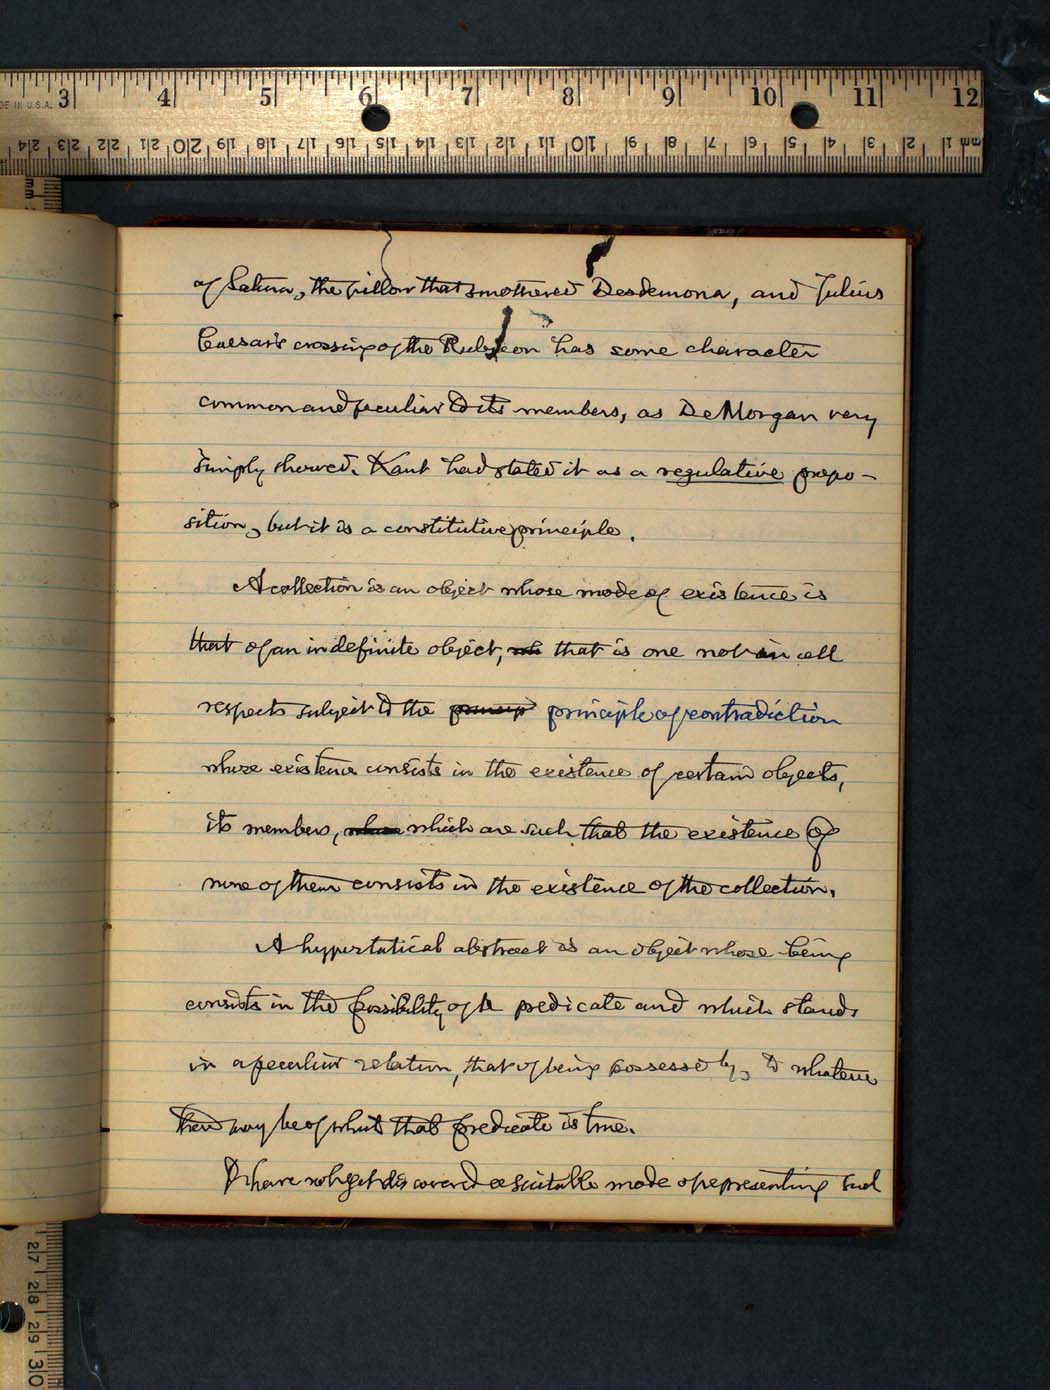 MADE IN U.S.A. 3 4 5 6 7 8 9 10 11 12
24 23 22 21 20 19 18 17 16 15 14 13 12 11 10 9 8 7 6 5 4 3 2 1 mm
mm
of Saturn, the pillow that smothered Desdemona, and Julius
Caesar's crossing of the Rubicon has some character
common and peculiar to its members, as De Morgan very
simply showed. Kant had stated it as a regulative propo-
sition, but it is a constitutive principle.
A collection is an object whose mode of existence is
that of an indefinite object, wh that is one not in all
respects subject to the princip principle of contradiction
whose existence consists in the existence of certain objects,
its members, whose which are such that the existence of
none of them consists in the existence of the collection.
A hypostatical abstract is an object whose being
consists in the possibility of a predicate and which stands
in a peculiar relation, that of being possessed by, to whatever
there may be of which that predicate is true.
I have not yet discovered a suitable mode of representing such
27 28 29 30